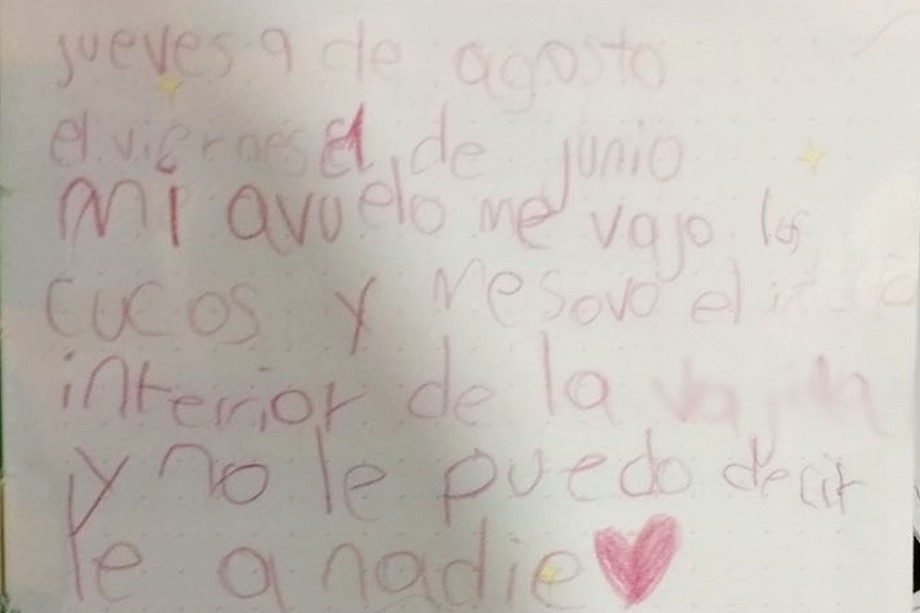 jueves 9 de agosto
el viernes de junio
Mi avuelo me vajo los
cucos y mesovo el
interior de la
y no le puedo decir
le a nadie